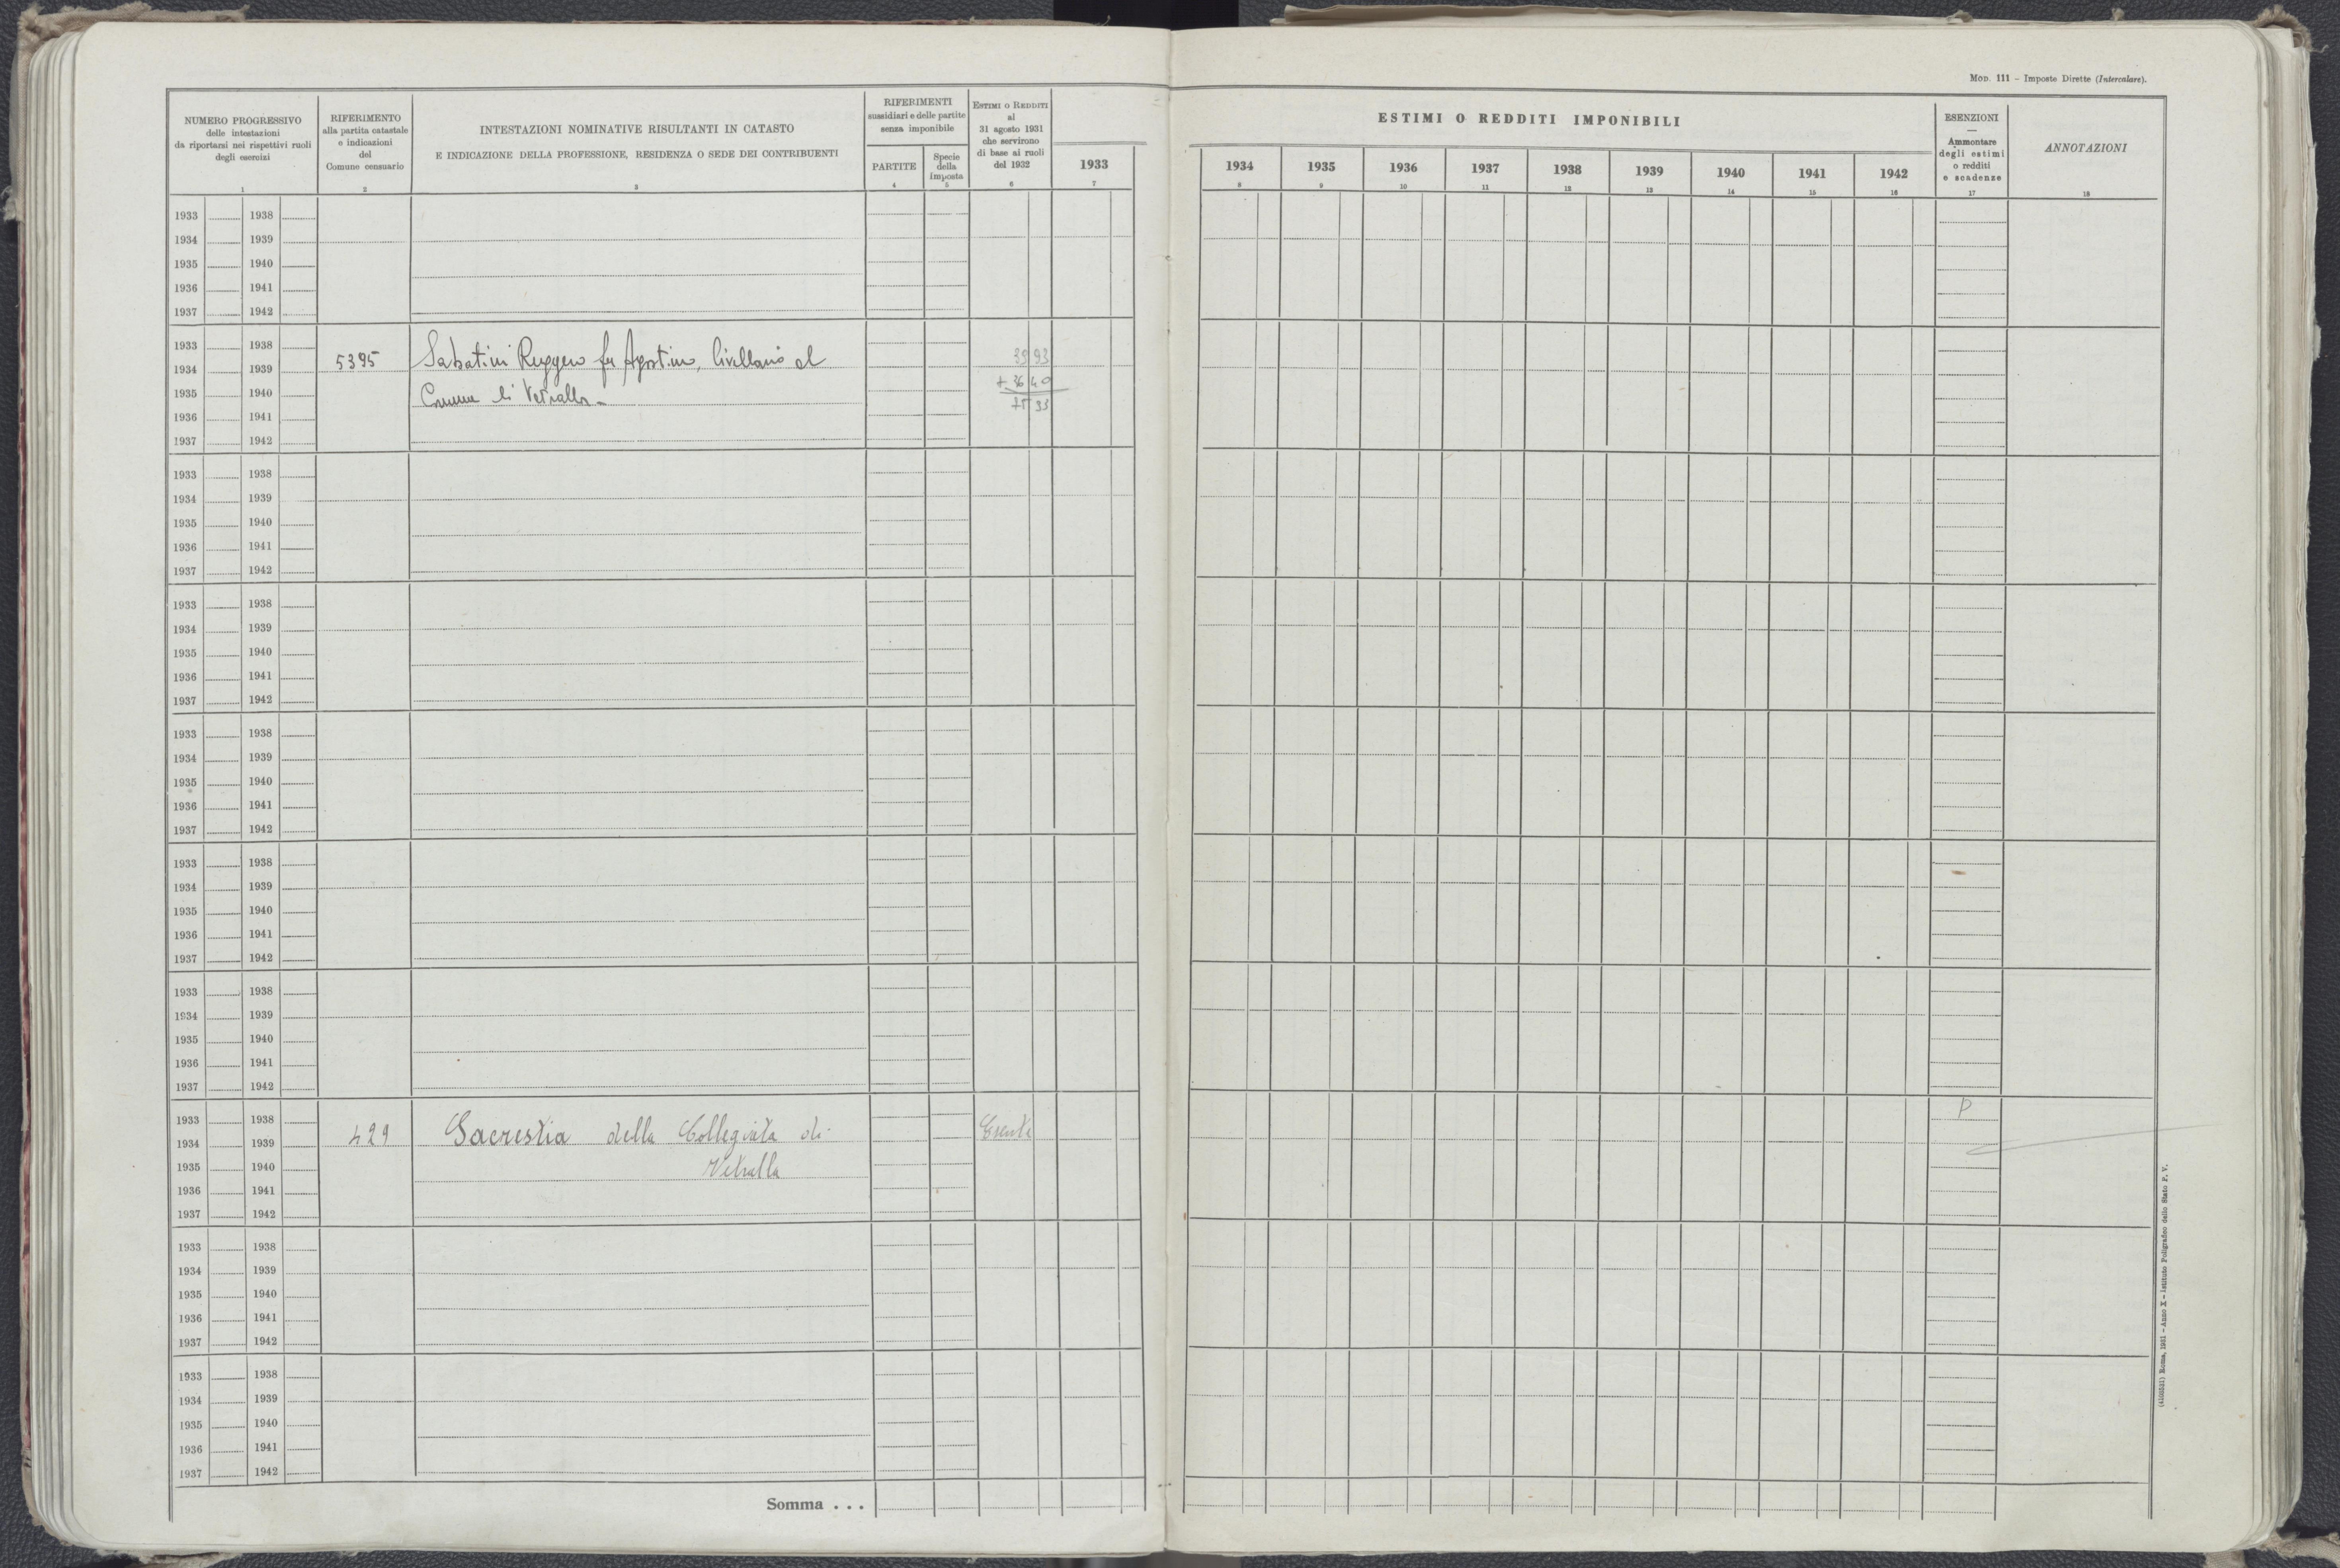 MOD. 111 - Imposte Dirette (Intercalare).
NUMERO PROGRESSIVO
delle intestazioni
da riportarsi nei rispettivi ruoli
degli esercizi
1
RIFERIMENTO
alla partita catastale
e indicazioni
del
Comune censuario
2
INTESTAZIONI NOMINATIVE RISULTANTI IN CATASTO
E INDICAZIONE DELLA PROFESSIONE, RESIDENZA O SEDE DEI CONTRIBUENTI
3
RIFERIMENTI
sussidiari e delle partite
senza imponibile
PARTITE
4
Specie
della
imposta
5
ESTIMI O REDDITI
al
31 agosto 1931
che servirono
di base ai ruoli
del 1932
6
1933
7
ESTIMI O REDDITI IMPONIBILI
1934 1935 1936 1937 1938 1939 1940 1941 1942
8 9 10 11 12 13 14 15 16
ESENZIONI
—
Ammontare
degli estimi
o redditi
e scadenze
17
ANNOTAZIONI
18
1933 1938
1934 1939
1935 1940
1936 1941
1937 1942
1933 1938
1934 1939 5395 Sabatini Ruggero fu Agostino, livellario al 39 93
1935 1940 Comune di Vetralla - + 36 40
1936 1941 33
1937 1942
1933 1938
1934 1939
1935 1940
1936 1941
1937 1942
1933 1938
1934 1939
1935 1940
1936 1941
1937 1942
1933 1938
1934 1939
1935 1940
1936 1941
1937 1942
1933 1938
1934 1939
1935 1940
1936 1941
1937 1942
1933 1938
1934 1939
1935 1940
1936 1941
1937 1942
1933 1938 P
1934 1939 429 Sacrestia della Collegiata di Esente
1935 1940 Vetralla
1936 1941
1937 1942
1933 1938
1934 1939
1935 1940
1936 1941
1937 1942
1933 1938
1934 1939
1935 1940
1936 1941
1937 1942
Somma . . .
(4103531) Roma, 1931 - Anno X - Istituto Poligrafico dello Stato P. V.